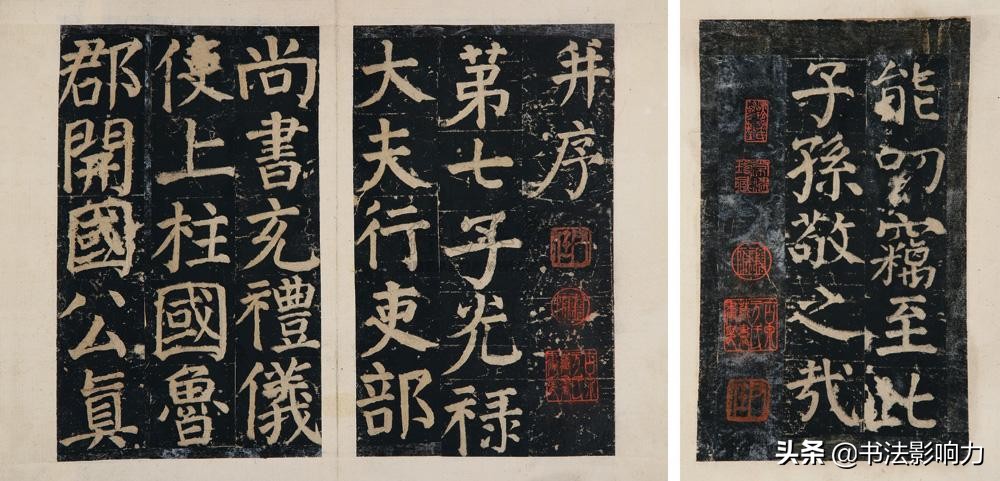 并序
第七子光禄
大夫行吏部
尚書充禮儀
使上柱國魯
郡開國公眞
能叨竊至此
子孫敬之哉
头条 @书法影响力